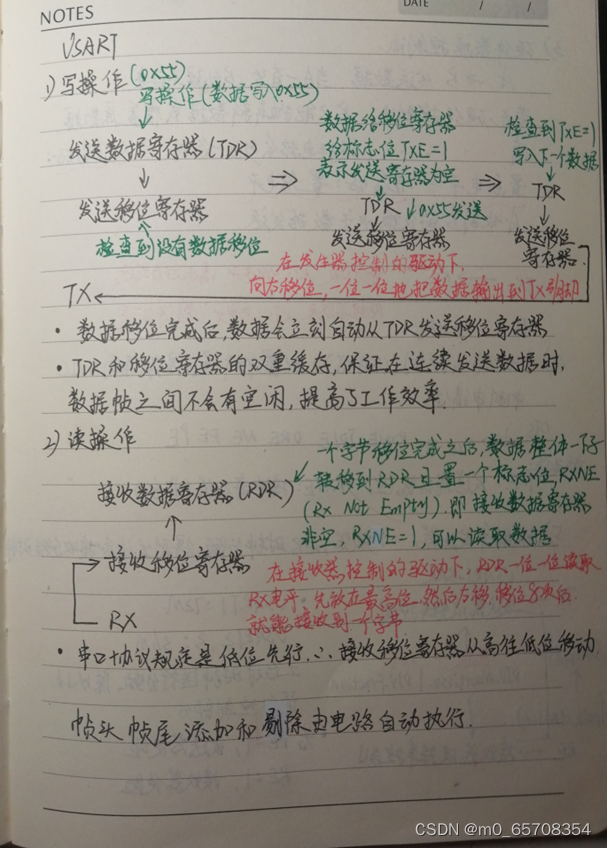 NOTES
DATE / /
USART
1) 写操作(0x55)
写操作(数据写入0x55)
发送数据寄存器(TDR)
发送移位寄存器
检查到没有数据移位
⇒
数据给移位寄存器
给标志位TXE=1
表示发送寄存器为空
TDR
0x55发送
发送移位寄存器
⇒
检查到TXE=1
写入下一个数据
TDR
发送移位
寄存器.
在发生器控制的驱动下,
向右移位,一位一位地把数据输出到TX引脚
TX
• 数据移位完成后,数据会立刻自动从TDR发送移位寄存器
• TDR和移位寄存器的双重缓存,保证在连续发送数据时,
数据帧之间不会有空闲,提高了工作效率.
2) 读操作
一个字节移位完成之后,数据整体一下子
转移到RDR且置一个标志位,RXNE
(Rx Not Empty).即接收数据寄存器
非空,RXNE=1,可以读取数据
接收数据寄存器(RDR)
接收移位寄存器
在接收器控制的驱动下,RDR一位一位读取
RX电平,先放在最高位,然后右移,移位8次后
就能接收到一个字节
RX
• 串口协议规定是低位先行.∴接收移位寄存器从高往低位移动
帧头帧尾添加和剔除由电路自动执行.
CSDN @m0_65708354